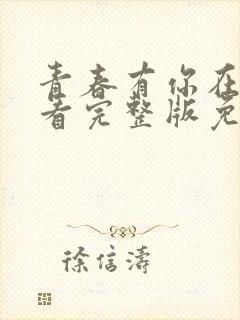 青春有你在
看完整版免
徐信濤